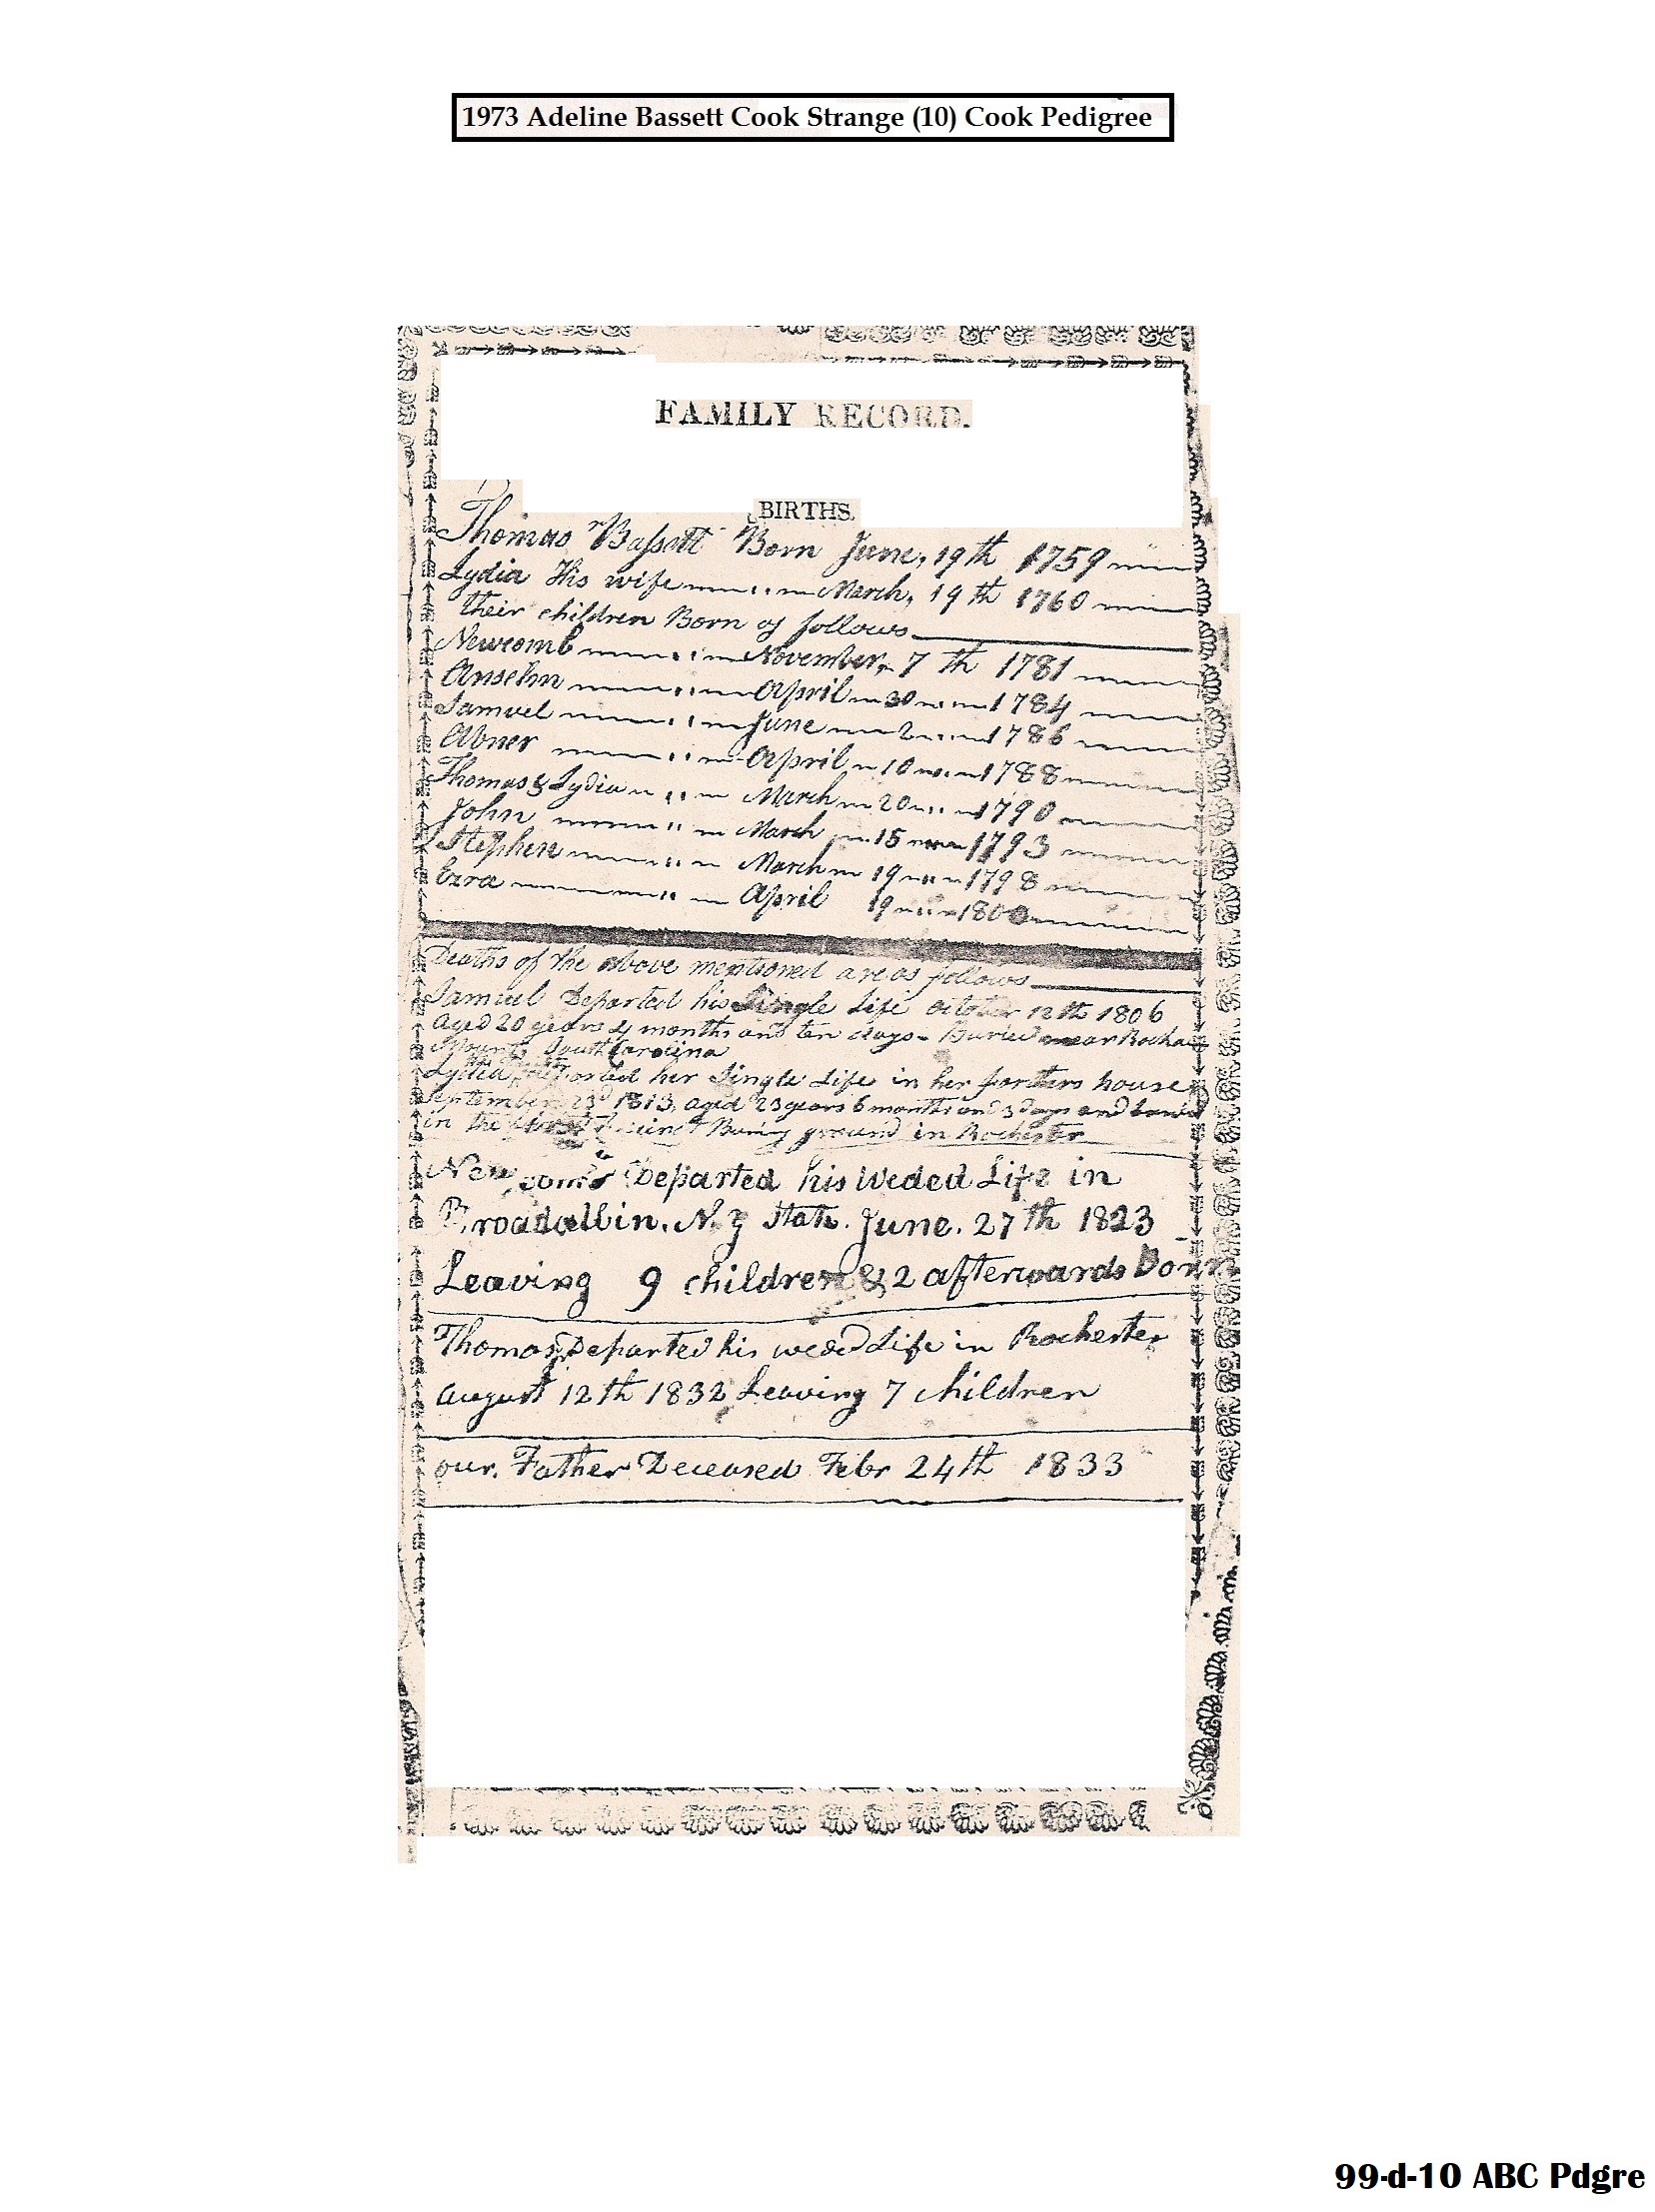 1973 Adeline Bassett Cook Strange (10) Cook Pedigree
FAMILY RECORD.
BIRTHS.
Thomas Bassett Born June, 19th 1759
Lydia His wife March, 19th 1760
their children Born as follows
Newcomb November, 7 th 1781
Anselm April 30 1784
Samuel June 2 1786
Abner April 10 1788
Thomas & Lydia March 20 1790
John March 15 1793
Stephen March 19 1798
Ezra April 19 1800
Deaths of the above mentioned are as follows
Samuel Departed his Single Life October 12th 1806
aged 20 years 4 months and ten days - Buried near
South Carolina
Lydia Departed her Single Life in her farthers house
September 23d 1813, aged 23 years 6 months and 3 Days and
in the Buring ground in Rochester
Newcomb Departed his Weded Life in
Broadalbin. N. Y State. June. 27th 1823
Leaving 9 children & 2 afterwards Born
Thomas Departed his weded Life in Rochester
August 12th 1832 Leaving 7 children
our. Father Deceased Febr 24th 1833
99-d-10 ABC Pdgre